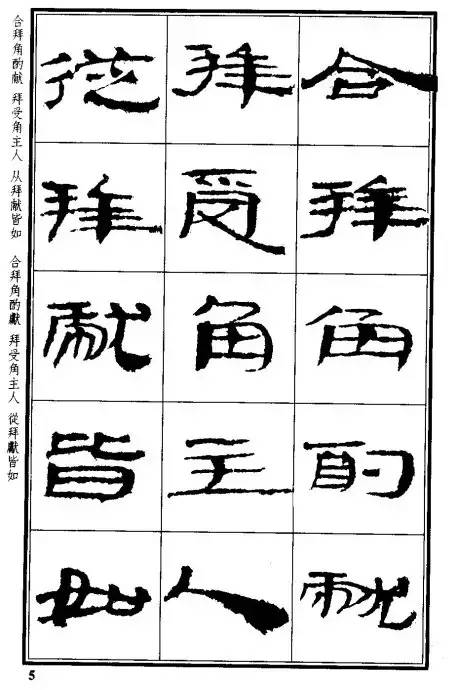 合拜角酌獻
拜受角主人
從拜獻皆如
合拜角酌献 拜受角主人 从拜献皆如 合拜角酌獻 拜受角主人 從拜獻皆如
5